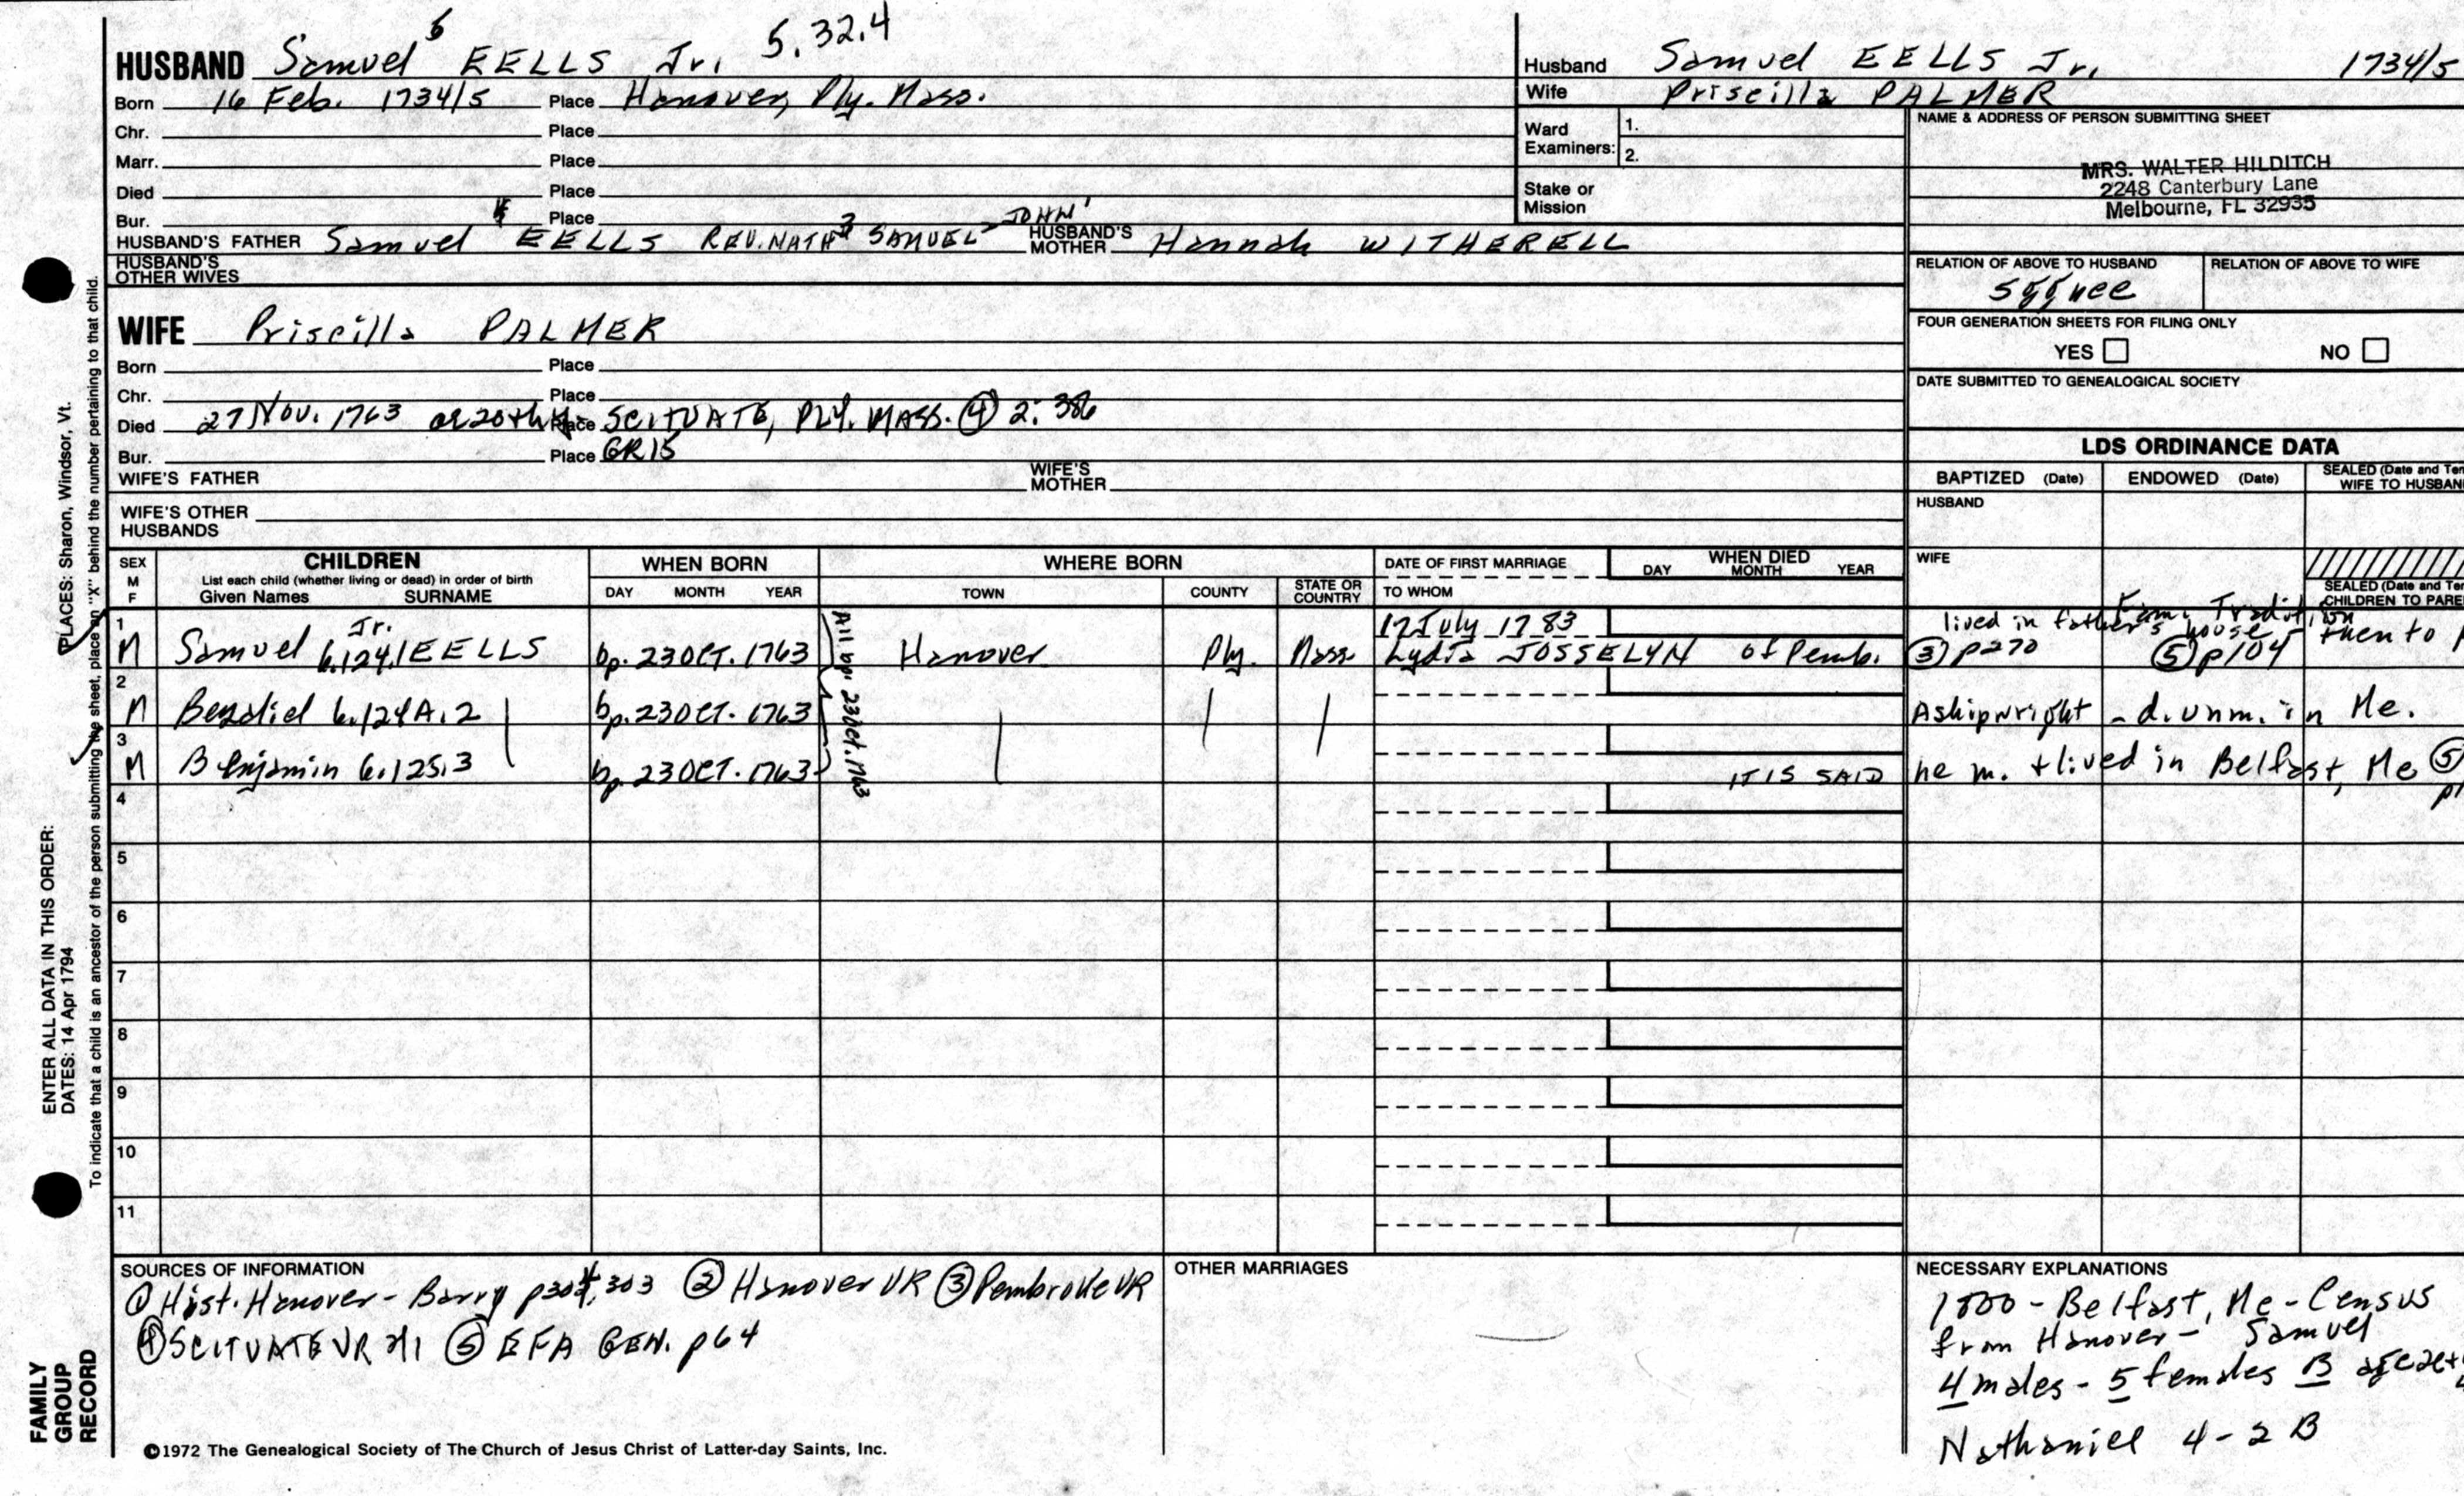 HUSBAND Samuel 5 EELLS Jr. 5.32.4
Born 16 Feb. 1734/5 Place Hanover, Ply. Mass.
Chr. Place
Marr. Place
Died Place
Bur. Place
HUSBAND'S FATHER Samuel 4 EELLS REV. NATH 3 SAMUEL 2 JOHN 1 HUSBAND'S MOTHER Hannah WITHERELL
HUSBAND'S OTHER WIVES
WIFE Priscilla PALMER
Born Place
Chr. Place
Died 27 Nov. 1763 or 20th Place SCITUATE, PLY. MASS. ④ 2: 386
Bur. Place GR15
WIFE'S FATHER WIFE'S MOTHER
WIFE'S OTHER HUSBANDS
Husband Samuel EELLS Jr. 1734/5
Wife Priscilla PALMER
Ward Examiners: 1.
2.
Stake or Mission
NAME & ADDRESS OF PERSON SUBMITTING SHEET
MRS. WALTER HILDITCH
2248 Canterbury Lane
Melbourne, FL 32935
RELATION OF ABOVE TO HUSBAND RELATION OF ABOVE TO WIFE
FOUR GENERATION SHEETS FOR FILING ONLY
YES NO
DATE SUBMITTED TO GENEALOGICAL SOCIETY
LDS ORDINANCE DATA
BAPTIZED (Date) ENDOWED (Date) SEALED (Date and Tem
WIFE TO HUSBAN
HUSBAND
WIFE
SEALED (Date and Tem
CHILDREN TO PARE
SEX M F CHILDREN WHEN BORN WHERE BORN DATE OF FIRST MARRIAGE WHEN DIED
List each child (whether living or dead) in order of birth
Given Names SURNAME DAY MONTH YEAR TOWN COUNTY STATE OR COUNTRY TO WHOM DAY MONTH YEAR
1 M Samuel Jr. 6.124.1 EELLS bp. 23 OCT. 1763 Hanover Ply. Mass 17 July 1783
Lydia JOSSELYN of Pemb.
Fam. Tradition
lived in father's house - then to
③ p270 ⑤ p104
All bp. 23 Oct. 1763
2 M Bezaliel 6.124A.2 bp. 23 OCT. 1763 A shipwright - d. unm. in Me.
3 M Benjamin 6.125.3 bp. 23 OCT. 1763 IT IS SAID he m. + lived in Belfast, Me ⑤
4
5
6
7
8
9
10
11
SOURCES OF INFORMATION
① Hist. Hanover - Barry p304, 303 ② Hanover VR ③ Pembroke VR
④ SCITUATE VR ⑤ EFA GEN. p64
OTHER MARRIAGES
NECESSARY EXPLANATIONS
1800 - Belfast, Me - Census
from Hanover - Samuel
4 males - 5 females B
Nathaniel 4 - 2 B
©1972 The Genealogical Society of The Church of Jesus Christ of Latter-day Saints, Inc.
FAMILY GROUP RECORD
ENTER ALL DATA IN THIS ORDER:
DATES: 14 Apr 1794
PLACES: Sharon, Windsor, Vt.
To indicate that a child is an ancestor of the person submitting the sheet, place an "X" behind the number pertaining to that child.